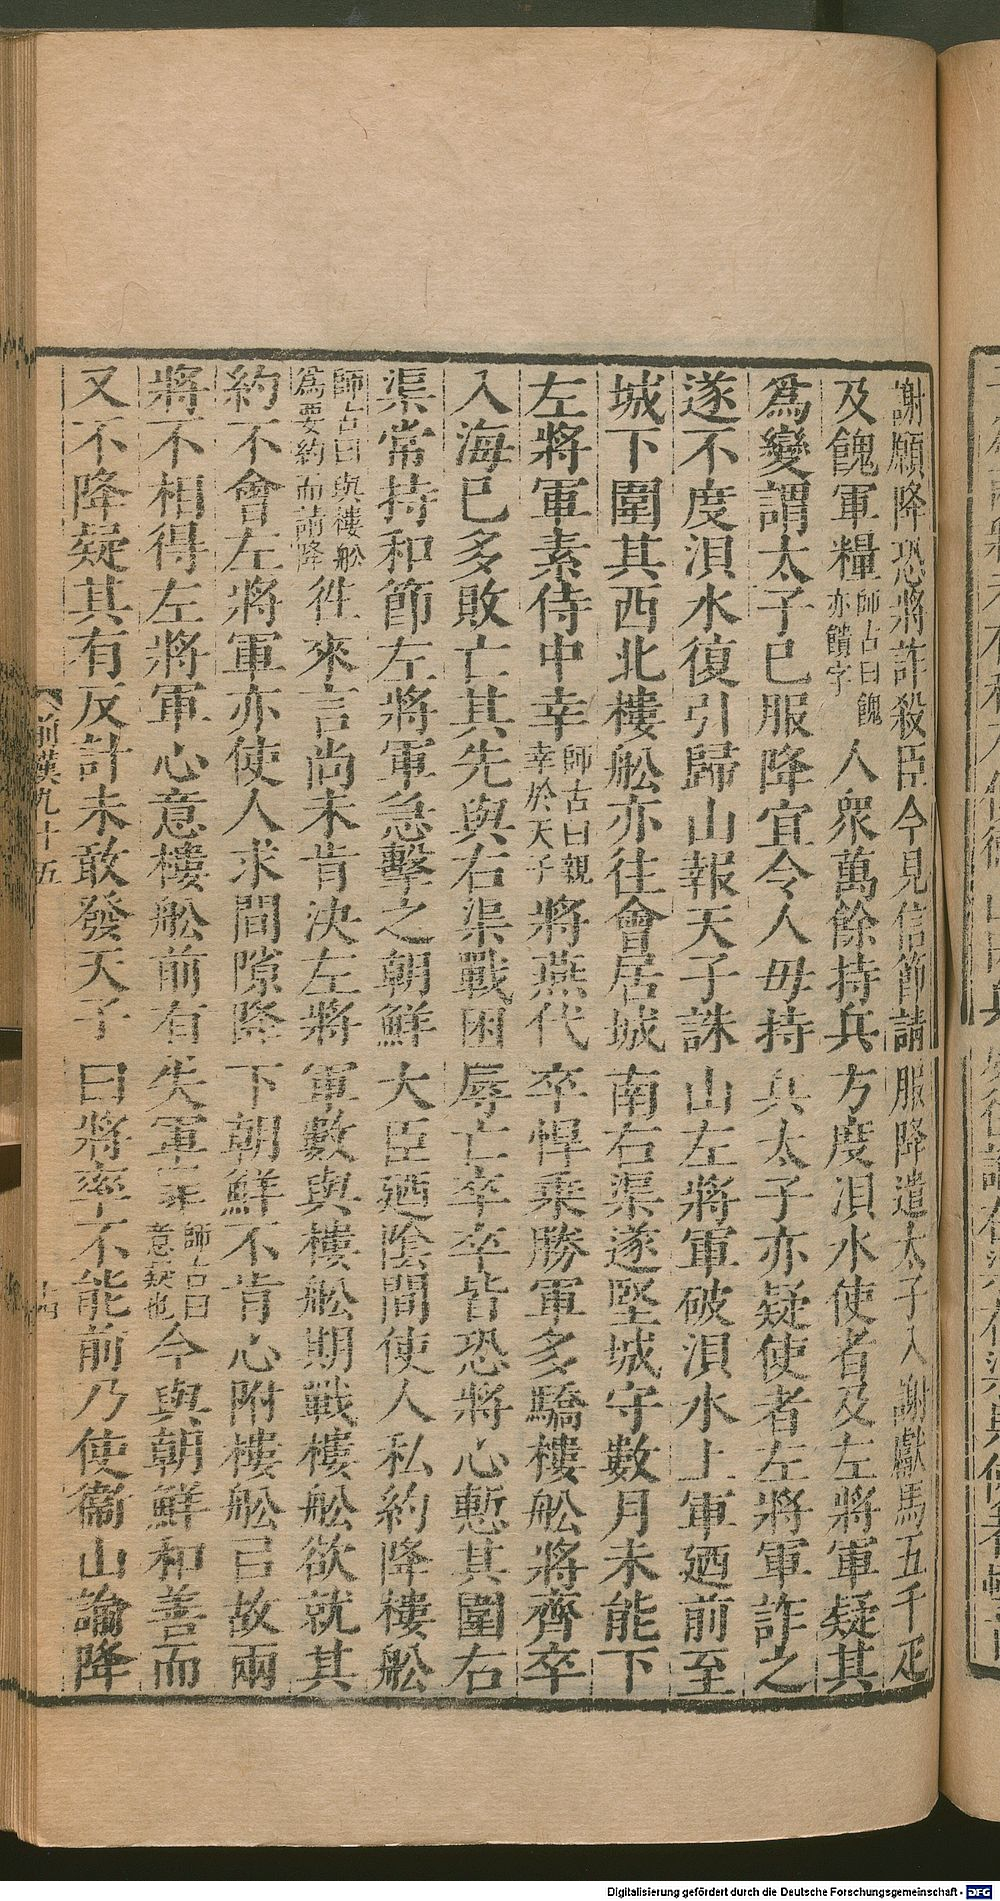 謝願降恐將詐殺臣今見信節請服降遣太子入謝獻馬五千疋
及餽軍糧師古曰餽亦饋字人衆萬餘持兵方度浿水使者及左將軍疑其
爲變謂太子已服降宜令人毋持兵太子亦疑使者左將軍詐之
遂不度浿水復引歸山報天子誅山左將軍破浿水上軍廼前至
城下圍其西北樓舩亦往會居城南右渠遂堅城守數月未能下
左將軍素侍中幸師古曰親幸於天子將燕代卒悍乗勝軍多驕樓舩將齊卒
入海已多敗亡其先與右渠戰困辱亡卒卒皆恐將心慙其圍右
渠常持和節左將軍急擊之朝鮮大臣廼陰間使人私約降樓舩
師古曰與樓舩爲要約而請降徃來言尚未肯決左將軍數與樓舩期戰樓舩欲就其
約不會左將軍亦使人求間隙降下朝鮮不肯心附樓舩已故兩
將不相得左將軍心意樓舩前有失軍辠師古曰意疑也今與朝鮮和善而
又不降疑其有反計未敢發天子曰將率不能前乃使衞山諭降
前漢九十五
十四
Digitalisierung gefördert durch die Deutsche Forschungsgemeinschaft - DFG